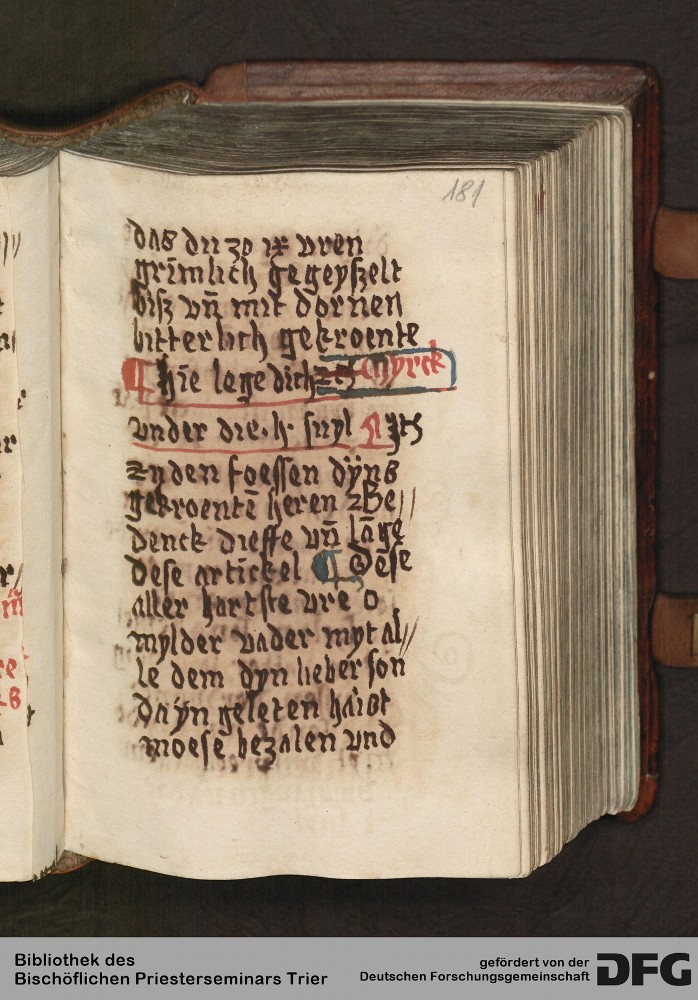 181
das du zo ix vren
grimlich gegeyszelt
bisz vn̄ mit dornen
bitterlich gekroente
¶ hie lege dich Myrck
vnder die .h. suyl ¶
zu den foessen dÿns
gekroentē heren
denck dieffe vn̄ lāge
dese artickel ¶ Dese
aller hartste vre o
mylder vader myt al//
le dem dyn lieber son
Da yn geleten haist
moese bezalen vnd
Bibliothek des
Bischöflichen Priesterseminars Trier
gefördert von der
Deutschen Forschungsgemeinschaft
DFG